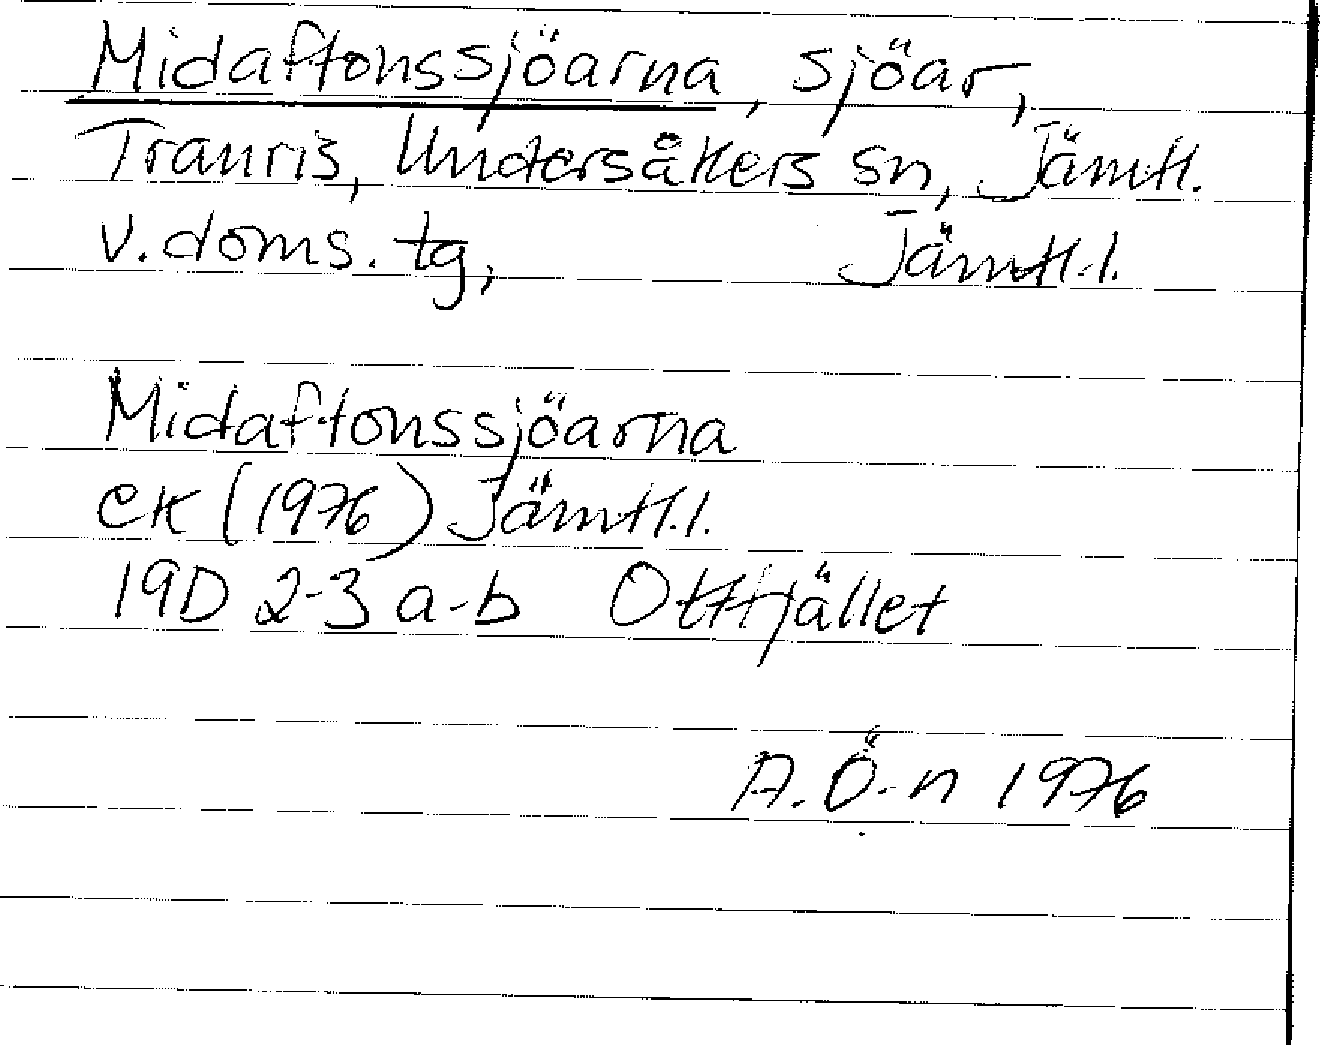 Midaftonssjöarna, sjöar,
Tranris, Undersåkers sn, Jämtl.
v. doms. tg, Jämtl.l.
Midaftonssjöarna
ek (1976) Jämtl.l.
19D 2-3 a-b Ottfjället
A. Ö-n 1976